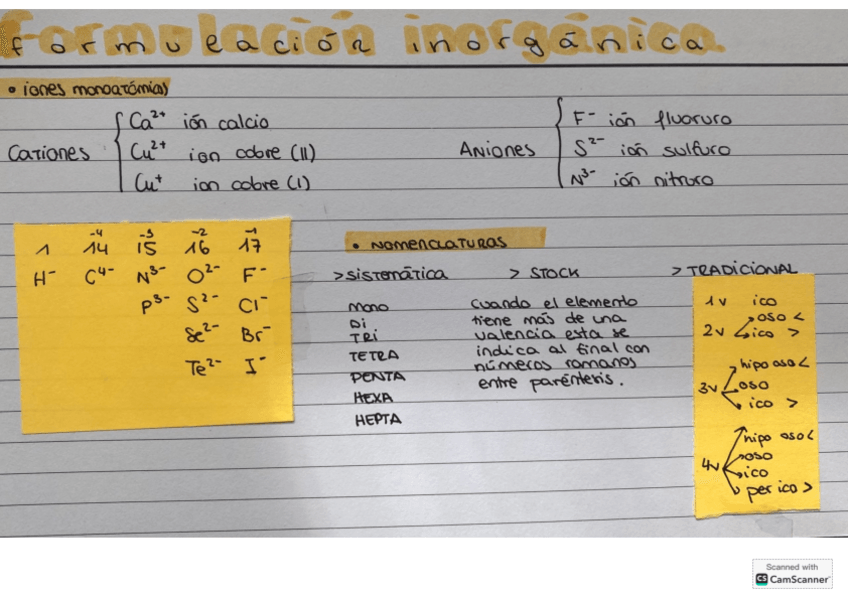 formulación inorgánica.
• iones monoatómicos
Cationes
Ca²⁺ ión calcio
Cu²⁺ ion cobre (II)
Cu⁺ ion cobre (I)
ANIONES
F⁻ ión fluoruro
S²⁻ ión sulfuro
N³⁻ ión nitruro
-4 -3 -2 -1
1 14 15 16 17
H⁻ C⁴⁻ N³⁻ O²⁻ F⁻
P³⁻ S²⁻ Cl⁻
Se²⁻ Br⁻
Te²⁻ I⁻
• NOMENCLATURAS
> SISTEMÁTICA
MONO
Di
TRi
TETRA
PENTA
HEXA
HEPTA
> STOCK
cuando el elemento
tiene más de una
valencia esta se
indica al final con
números romanos
entre paréntesis.
> TRADICIONAL
1v ico
2v oso <
ico >
3v hipo oso <
oso
ico >
4v hipo oso <
oso
ico
per ico >
Scanned with
CS CamScanner